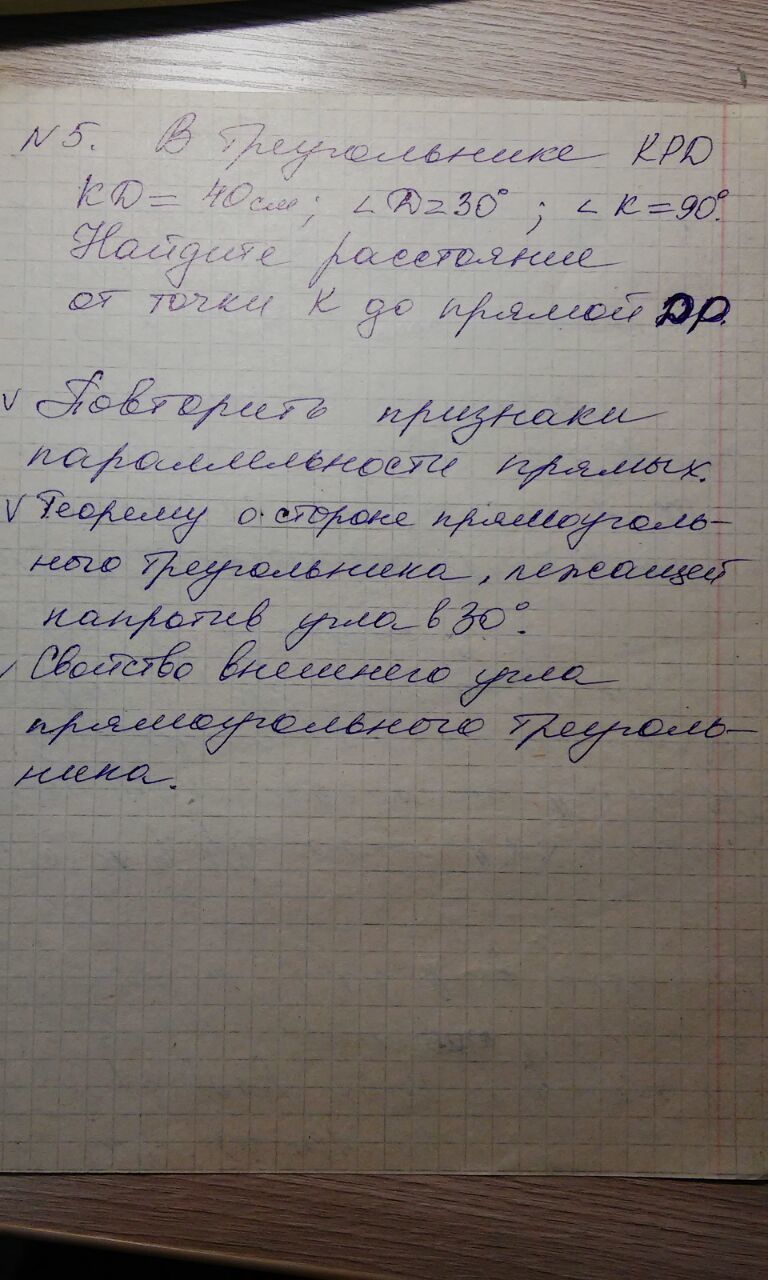 N 5. В треугольнике KPD
KD = 40 см; ∠D = 30°; ∠K = 90°.
Найдите расстояние
от точки K до прямой DP.
V Повторить признаки
параллельности прямых.
V Теорему о стороне прямоуголь-
ного треугольника, лежащей
напротив угла в 30°.
V Свойство внешнего угла
прямоугольного треуголь-
ника.